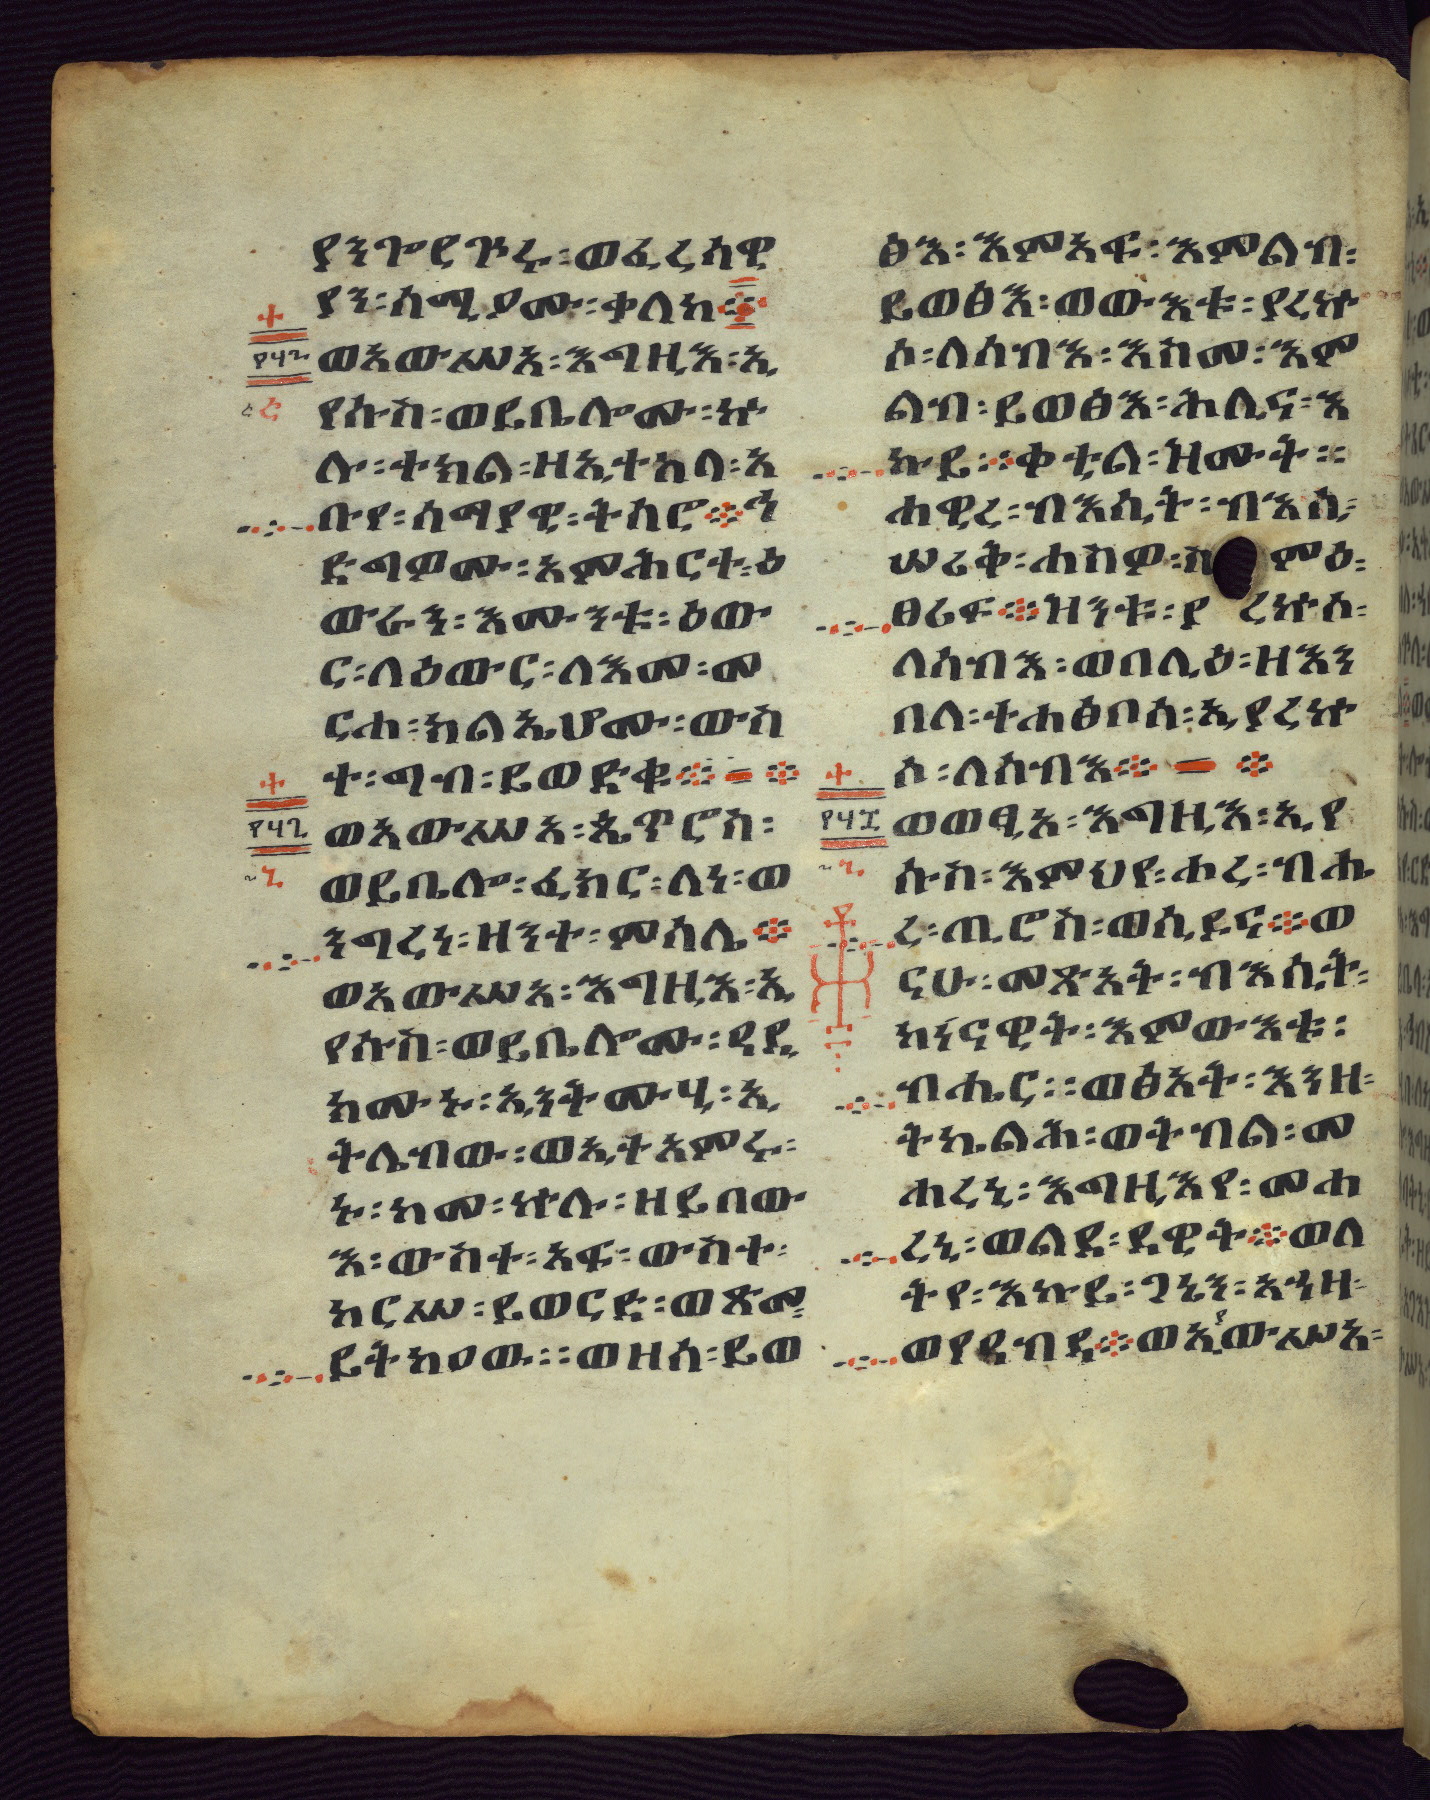 ያንጐርጕሩ፡ወፈሪሳዊ
ያን፡ሰሚዖሙ፡ቀለከ፨
፻፶፭
ወአውሥአ፡እግዚእ፡ኢ
የሱስ፡ወይቤሎሙ፡ኵ
ሉ፡ተክል፡ዘኢተከለ፡አ
ቡየ፡ሰማያዊ፡ትሰሮ፨ኅ
ድግዎሙ፡አምሕርተ፡ዕ
ውራን፡እሙንቱ፡ዕው
ር፡ለዕውር፡ለእመ፡መ
ርሐ፡ክልኤሆሙ፡ውስ
ተ፡ግብ፡ይወድቁ፨
፻፶፮
ወአውሥአ፡ጴጥሮስ፡
ወይቤሎ፡ፈክር፡ለነ፡ወ
ንግረነ፡ዘንተ፡ምሳሌ፨
ወአውሥአ፡እግዚእ፡ኢ
የሱስ፡ወይቤሎሙ፡ዓዲ
ክሙኑ፡ኢንትሙሂ፡ኢ
ትሌብው፡ወኢተአምሩ፡
ኑ፡ከመ፡ኵሉ፡ዘይበው
እ፡ውስተ፡አፍ፡ውስተ፡
ከርሥ፡ይወርድ፡ወጽመ
ይትከዐው፡፡ወዘሰ፡ይወ
ፅእ፡እምአፍ፡እምልብ፡
ይወፅእ፡ወውእቱ፡ያረኵ
ሶ፡ለሰብእ፡እስመ፡እም
ልብ፡ይወፅእ፡ሕሊና፡እ
ኩይ፡፡ቀቲል፡ዝሙት፡፡
ሐዊረ፡ብእሲት፡ብእሲ፡
ሠሪቅ፡ሐሰዎ፡ስምዕ፡
ፀሪፍ፨ዝንቱ፡ያረኵስ፡
ለሰብእ፡ወበሊዕ፡ዘእን
በለ፡ተሐፅቦሰ፡ኢያረኵ
ሶ፡ለሰብእ፨
፻፶፯
ወወፂአ፡እግዚእ፡ኢየ
ሱስ፡እምህየ፡ሐረ፡ብሔ
ረ፡ጢሮስ፡ወሲዶና፨ወ
ናሁ፡መጽአት፡ብእሲት፡
ከነናዊት፡እምውእቱ፡
ብሔር፡፡ወፅአት፡እንዘ፡
ትኬልሕ፡ወትብል፡መ
ሐረኒ፡እግዚእየ፡መሐ
ረኒ፡ወልደ፡ዳዊት፨ወለ
ትየ፡እኩይ፡ጋኔን፡አኀዘ፡
ወየዓብዳ፨ወኢያውሥአ፡